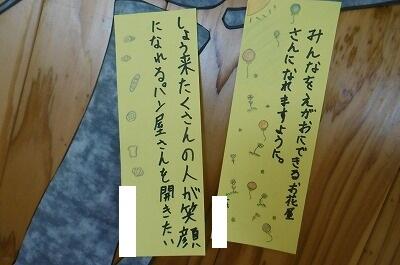 みんなをえがおにできるお花屋
さんになれますように。
しょう来たくさんの人が笑顔
になれる。パン屋さんを開きたい